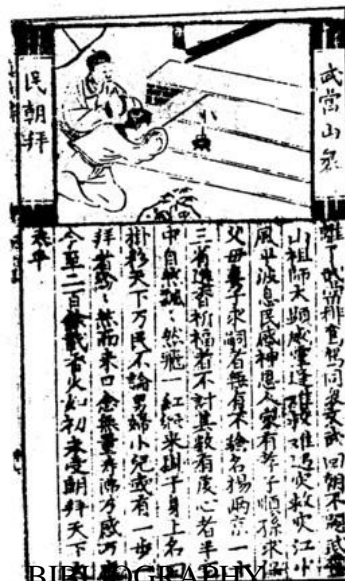 武當山
民朝拜
離了武當排駕同眾文武回朝不題武當
山祖師大顯威靈逢難救難遇災救災江
風正波息民感神恩人家有孝子順孫求
父母妻子求嗣者無有不驗名揚兩京一
三省進香祈福者不計其數有虔心者半
中自然飄〻然飛一紅絲來掛于身上名
掛彩天下万民不論男婦小兒或有一步
拜者紛〻然而來口念無量壽佛万感万
今至二百餘載香火如初永受朝拜天下
太平
BIBLIOGRAPHY